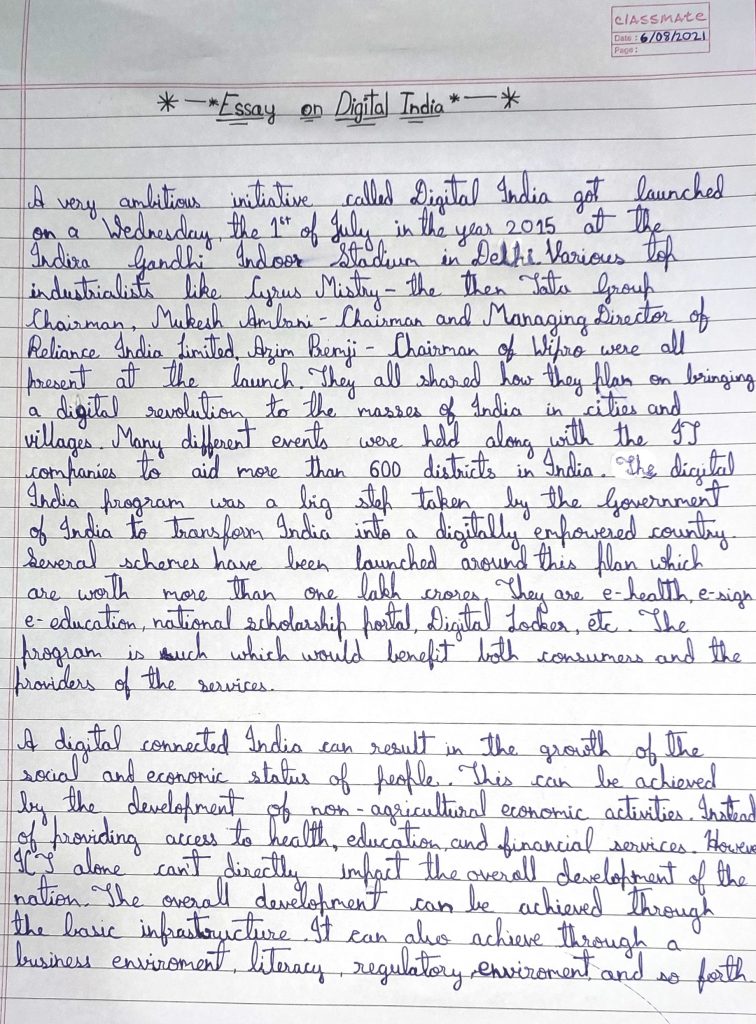 classmate
Date : 6/08/2021
Page :
* — * Essay on Digital India * — *
A very ambitious initiative called Digital India got launched
on a Wednesday, the 1st of July in the year 2015 at the
Indira Gandhi Indoor Stadium in Delhi. Various top
industrialists like Cyrus Mistry - the then Tata Group
Chairman, Mukesh Ambani - Chairman and Managing Director of
Reliance India Limited, Azim Premji - Chairman of Wipro were all
present at the launch. They all shared how they plan on bringing
a digital revolution to the masses of India in cities and
villages. Many different events were held along with the IT
companies to aid more than 600 districts in India. The digital
India program was a big step taken by the Government
of India to transform India into a digitally empowered country.
Several schemes have been launched around this plan which
are worth more than one lakh crores. They are e-health, e-sign
e-education, national scholarship portal, Digital Locker, etc. The
program is such which would benefit both consumers and the
providers of the services.
A digital connected India can result in the growth of the
social and economic status of people. This can be achieved
by the development of non-agricultural economic activities. Instead
of providing access to health, education, and financial services. Howeve
ICT alone can't directly impact the overall development of the
nation. The overall development can be achieved through
the basic infrastructure. It can also achieve through a
business enviroment, literacy, regulatory enviroment, and so forth.